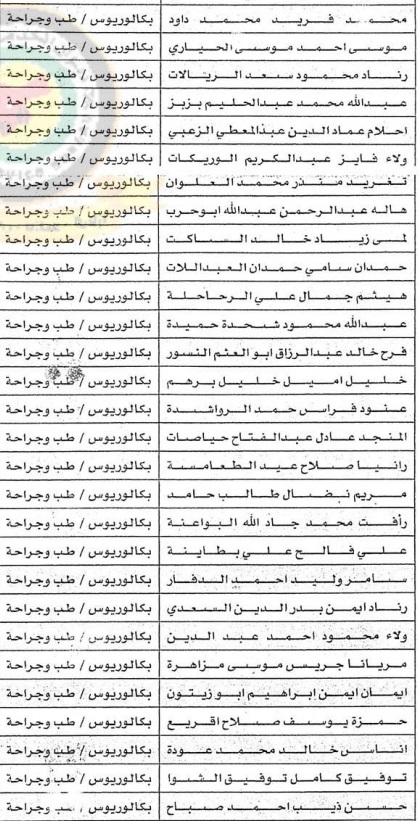 محمد فريد محمد داود بكالوريوس / طب وجراحة
موسى احمد موسى الحياري بكالوريوس / طب وجراحة
رناد محمود سعد الريالات بكالوريوس / طب وجراحة
عبدالله محمد عبدالحليم بزبز بكالوريوس / طب وجراحة
احلام عماد الدين عبدالمعطي الزعبي بكالوريوس / طب وجراحة
ولاء فايز عبدالكريم الوريكات بكالوريوس / طب وجراحة
تغريد منذر محمد العلوان بكالوريوس / طب وجراحة
هاله عبدالرحمن عبدالله ابوحرب بكالوريوس / طب وجراحة
لمى زياد خالد الساكت بكالوريوس / طب وجراحة
حمدان سامي حمدان العبداللات بكالوريوس / طب وجراحة
هيثم جمال علي الرحاحلة بكالوريوس / طب وجراحة
عبدالله محمود شحدة حميدة بكالوريوس / طب وجراحة
فرح خالد عبدالرزاق ابو العثم النسور بكالوريوس / طب وجراحة
خليل اميل خليل برهم بكالوريوس / طب وجراحة
عنود فراس حمد الرواشدة بكالوريوس / طب وجراحة
المنجد عادل عبدالفتاح حياصات بكالوريوس / طب وجراحة
رانيا صلاح عيد الطعامسة بكالوريوس / طب وجراحة
مريم نضال طالب حامد بكالوريوس / طب وجراحة
رأفت محمد جاد الله البواعنة بكالوريوس / طب وجراحة
علي فالح علي بطاينة بكالوريوس / طب وجراحة
سامر وليد احمد الدفار بكالوريوس / طب وجراحة
رناد ايمن بدر الدين السعدي بكالوريوس / طب وجراحة
ولاء محمود احمد عبد الدين بكالوريوس / طب وجراحة
مريانا جريس موسى مزاهرة بكالوريوس / طب وجراحة
ايمان ايمن ابراهيم ابو زيتون بكالوريوس / طب وجراحة
حمزة يوسف صلاح اقريع بكالوريوس / طب وجراحة
اناس خالد محمد عودة بكالوريوس / طب وجراحة
توفيق كامل توفيق الشوا بكالوريوس / طب وجراحة
حسن ذيب احمد صباح بكالوريوس / طب وجراحة